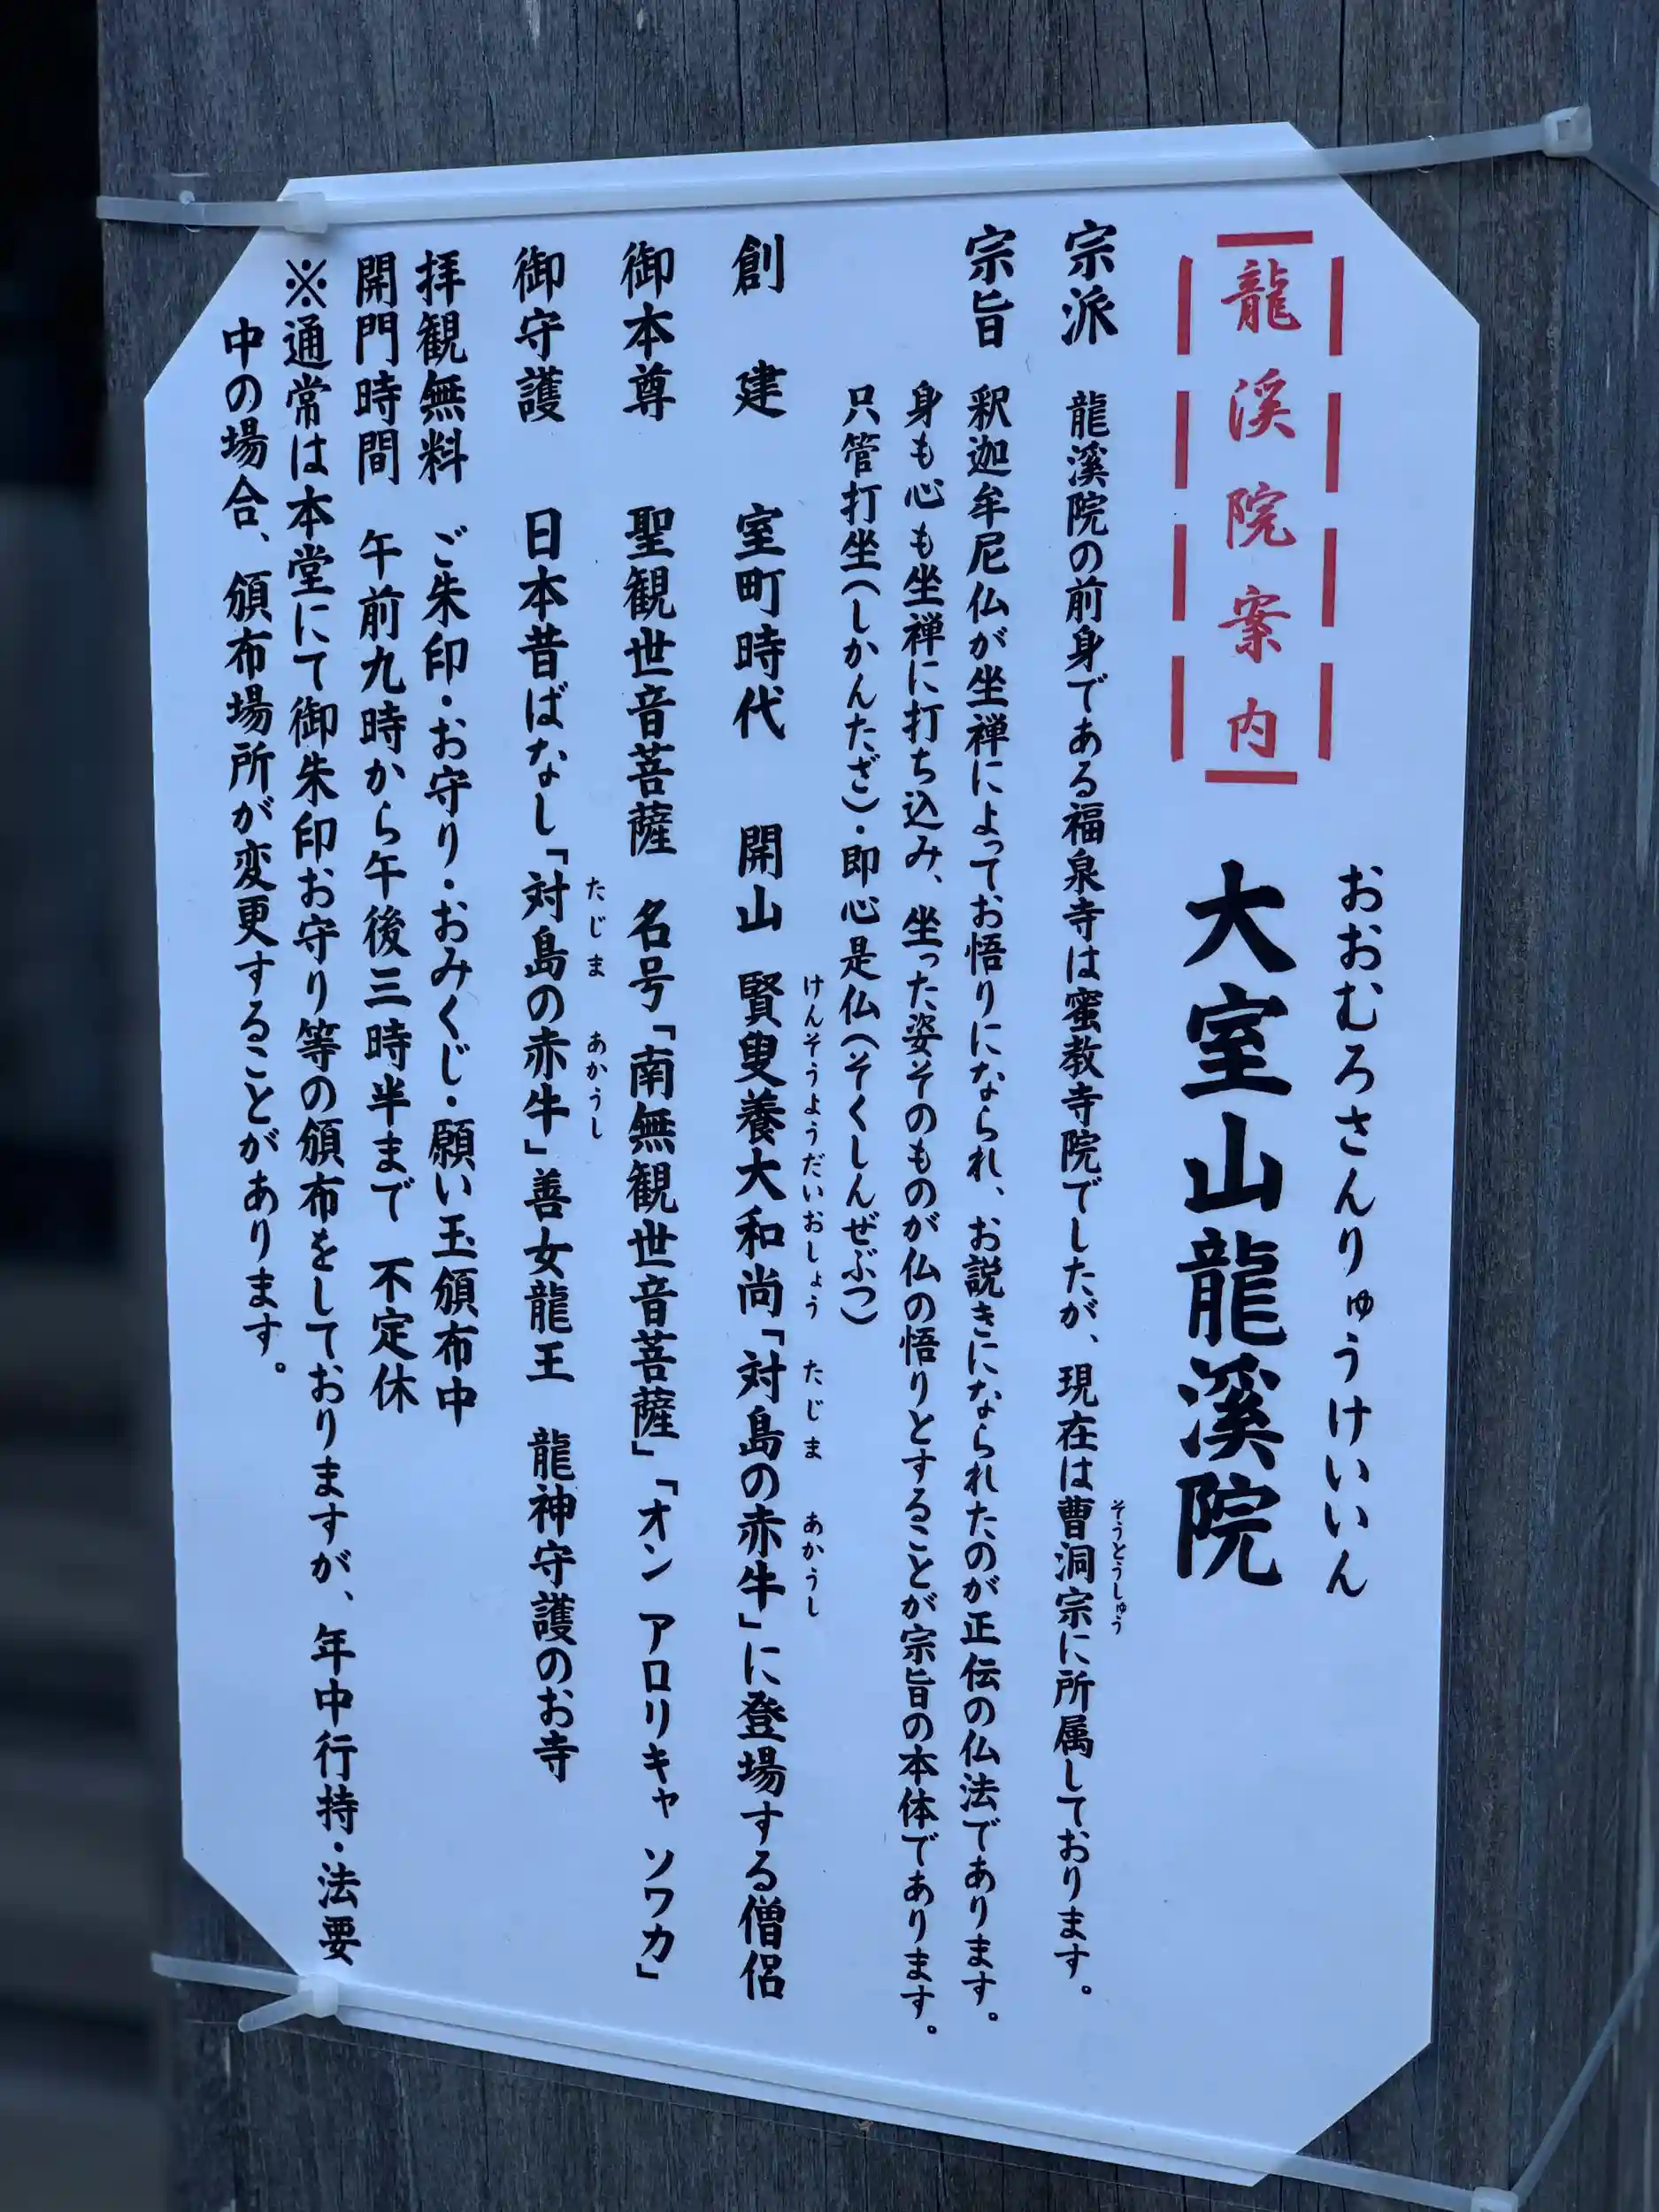 龍溪院案内
おおむろさんりゅうけいいん
大室山龍溪院
宗派　龍溪院の前身である福泉寺は蜜教寺院でしたが、現在は曹洞宗に所属しております。
そうとうしゅう
宗旨　釈迦牟尼仏が坐禅によってお悟りになられ、お説きになられたのが正伝の仏法であります。
身も心も坐禅に打ち込み、坐った姿そのものが仏の悟りとすることが宗旨の本体であります。
只管打坐(しかんたざ)・即心是仏(そくしんぜぶつ)
けんそうようだいおしょう　たじま　あかうし
創　建　室町時代　開山　賢叟養大和尚「対島の赤牛」に登場する僧侶
御本尊　聖観世音菩薩　名号「南無観世音菩薩」「オン アロリキャ ソワカ」
たじま　あかうし
御守護　日本昔ばなし「対島の赤牛」善女龍王　龍神守護のお寺
拝観無料　ご朱印・お守り・おみくじ・願い玉頒布中
開門時間　午前九時から午後三時半まで　不定休
※通常は本堂にて御朱印お守り等の頒布をしておりますが、年中行持・法要
中の場合、頒布場所が変更することがあります。